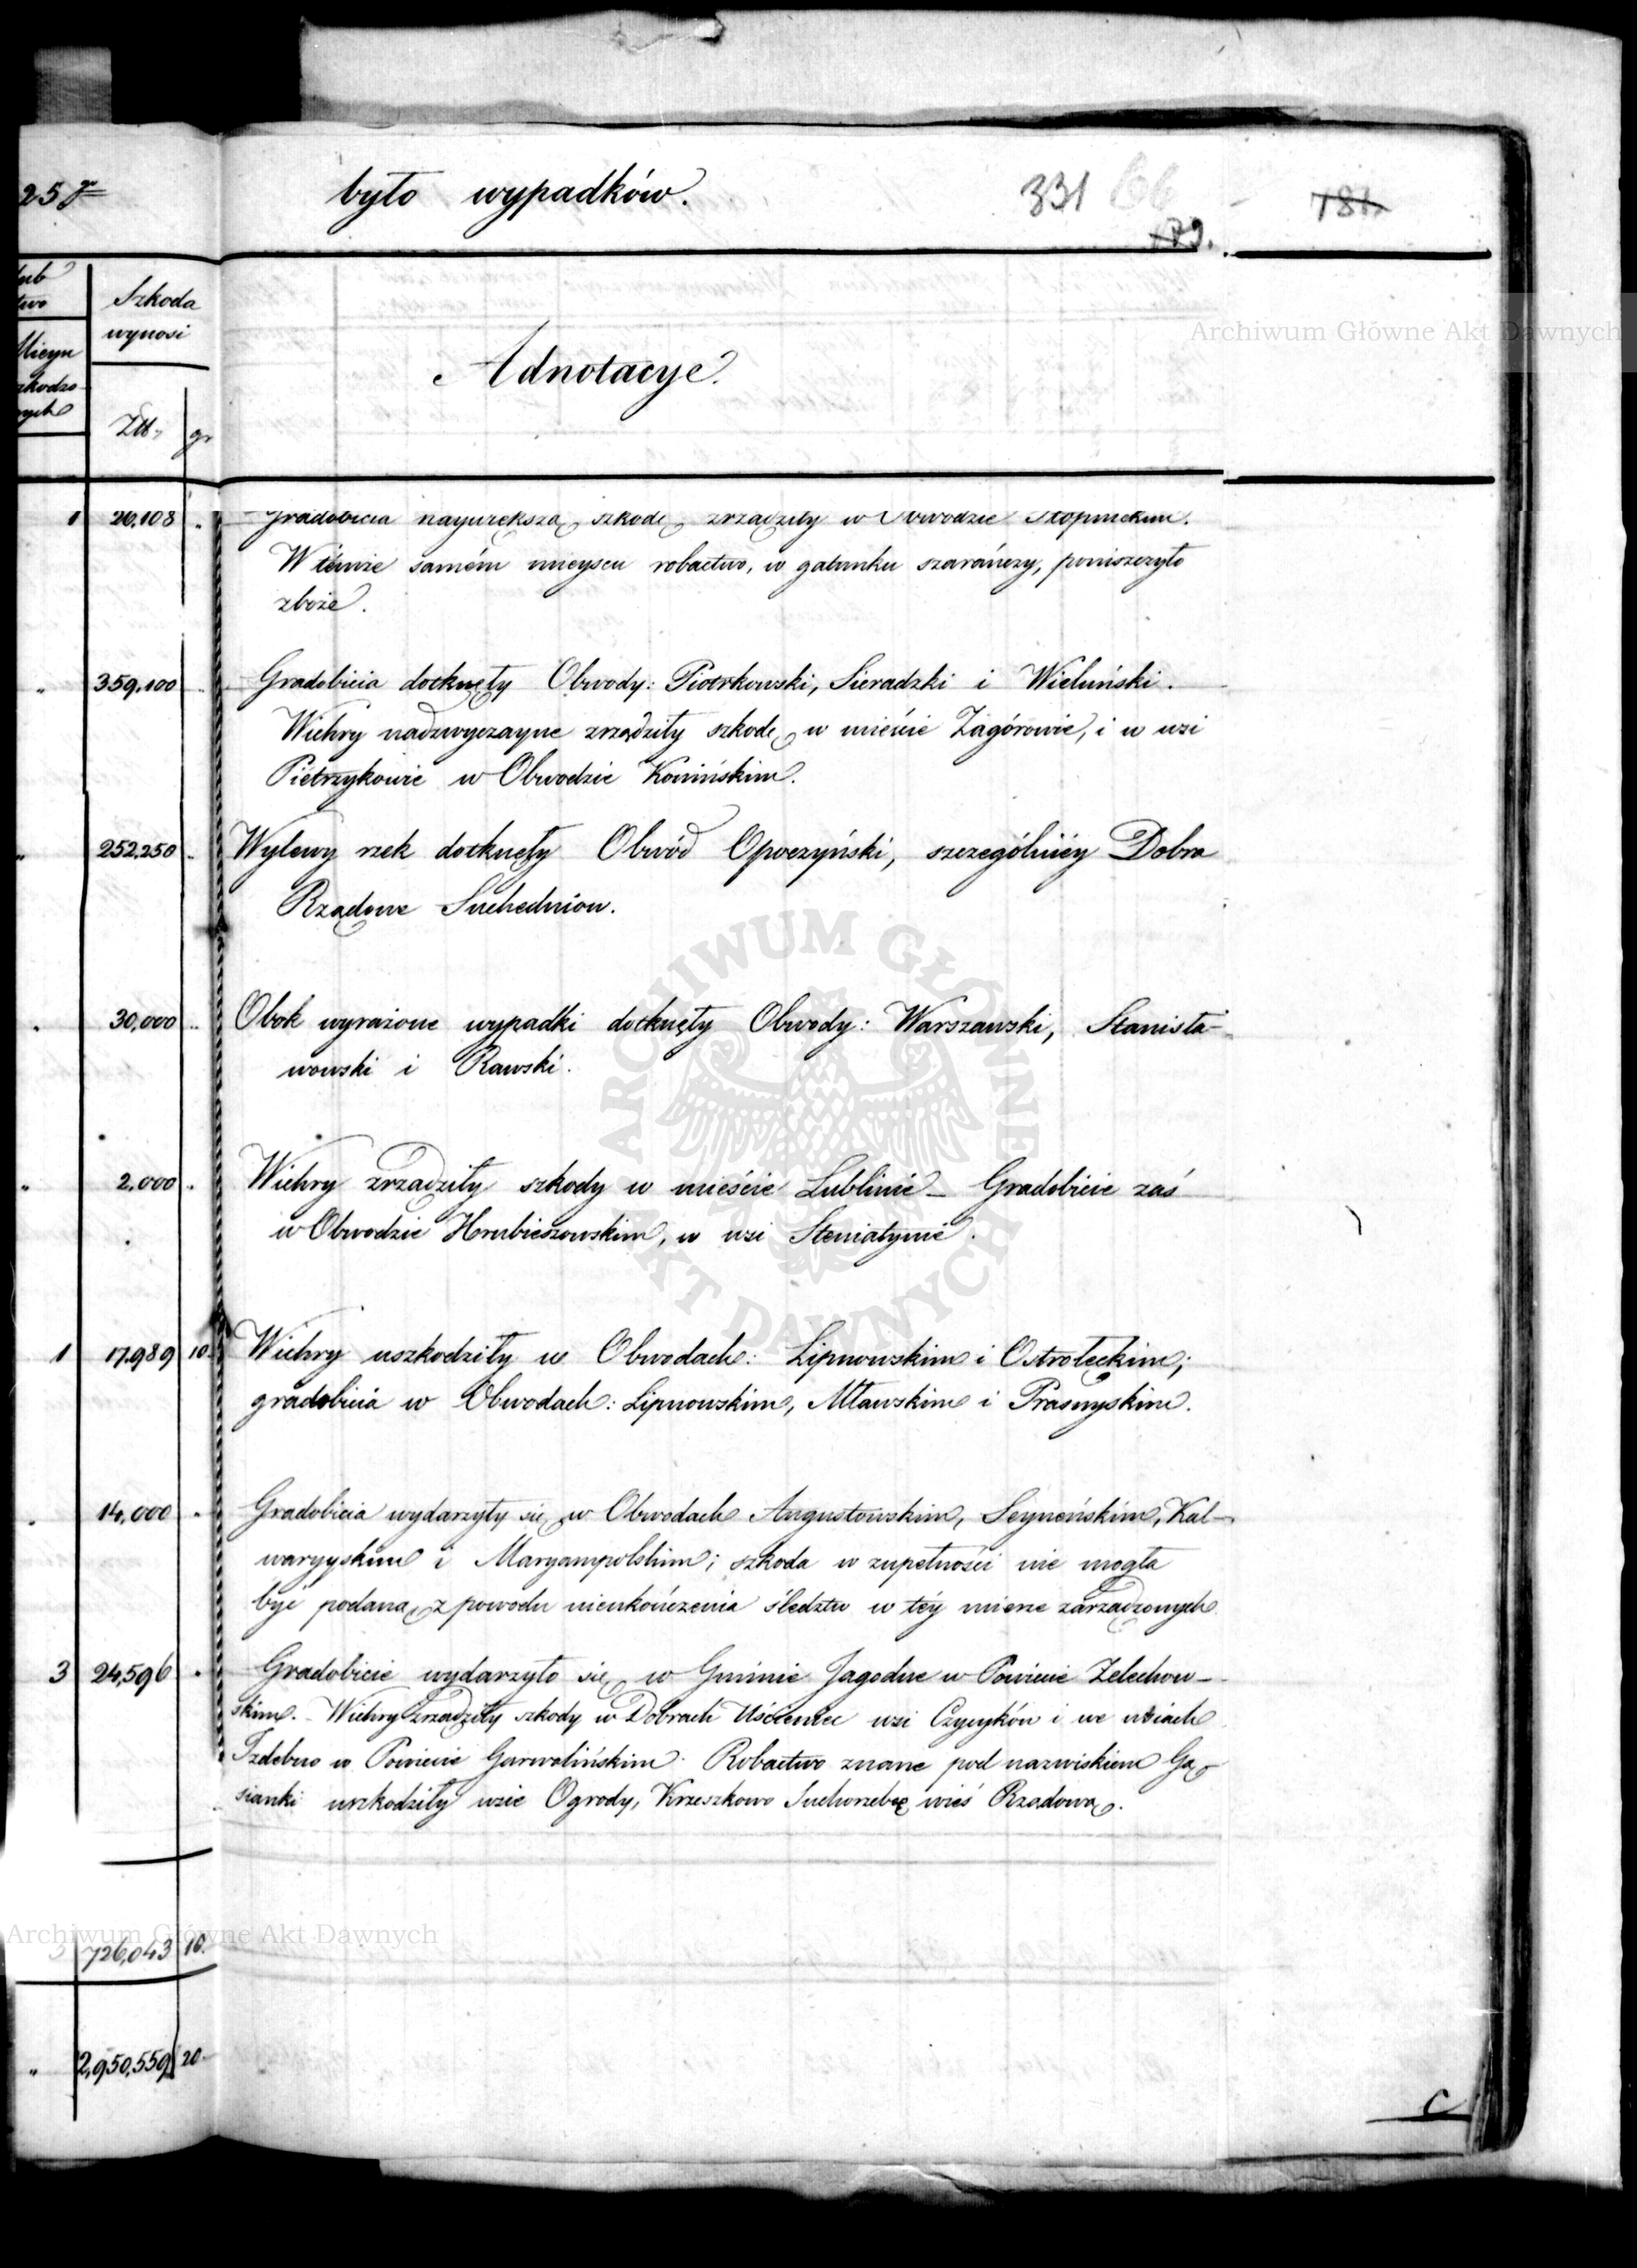 25 r było wypadków. 331 66 181.
179.
lub
two
Szkoda
wynosi
Młyn
szkodzo
nych
Złt. gr
Adnotacye.
1 26,108 " Gradobicia naywiększą szkodę zrządziły w Obwodzie Stopnickim.
W témże samém mieyscu robactwo, w gatunku szarańczy, poniszczyło
zboże.
" 359,100 " Gradobicia dotknęły Obwody: Piotrkowski, Sieradzki i Wieluński.
Wichry nadzwyczayne zrządziły szkodę w mieście Zagórowie, i w wsi
Pietrzykowie w Obwodzie Konińskim.
" 252,250 " Wylewy rzek dotknęły Obwód Opoczyński, szczególniéy Dobra
Rządowe Suchedniow.
" 30,000 " Obok wyrażone wypadki dotknęły Obwody: Warszawski, Stanisła-
wowski i Rawski.
" 2,000 " Wichry zrządziły szkody w mieście Lublinie – Gradobicie zaś
w Obwodzie Hrubieszowskim, w wsi Steniatynie.
1 17,989 10 Wichry uszkodziły w Obwodach: Lipnowskim i Ostrołęckim;
gradobicia w Obwodach: Lipnowskim, Mławskim i Prasnyskim.
" 14,000 " Gradobicia wydarzyły się w Obwodach Augustowskim, Seyneńskim, Kal-
waryyskim i Maryampolskim; szkoda w zupełności nie mogła
być podaną z powodu nieukończenia śledztw w téy mierze zarządzonych
3 24,596 " Gradobicie wydarzyło się w Gminie Jagodne w Powiecie Żelechow-
skim. Wichry zrządziły szkody w Dobrach Uścieniec wsi Czyżyków i we wsiach
Izdebno w Powiecie Garwolińskim. Robactwo znane pod nazwiskiem Gą-
sianki uszkodziły wsie Ogrody, Krzeszkowo Suchorzebę wieś Rządową.
726,043 10.
" 2,950,559 20
C
Archiwum Główne Akt Dawnych
ARCHIWUM GŁÓWNE AKT DAWNYCH
Archiwum Główne Akt Dawnych